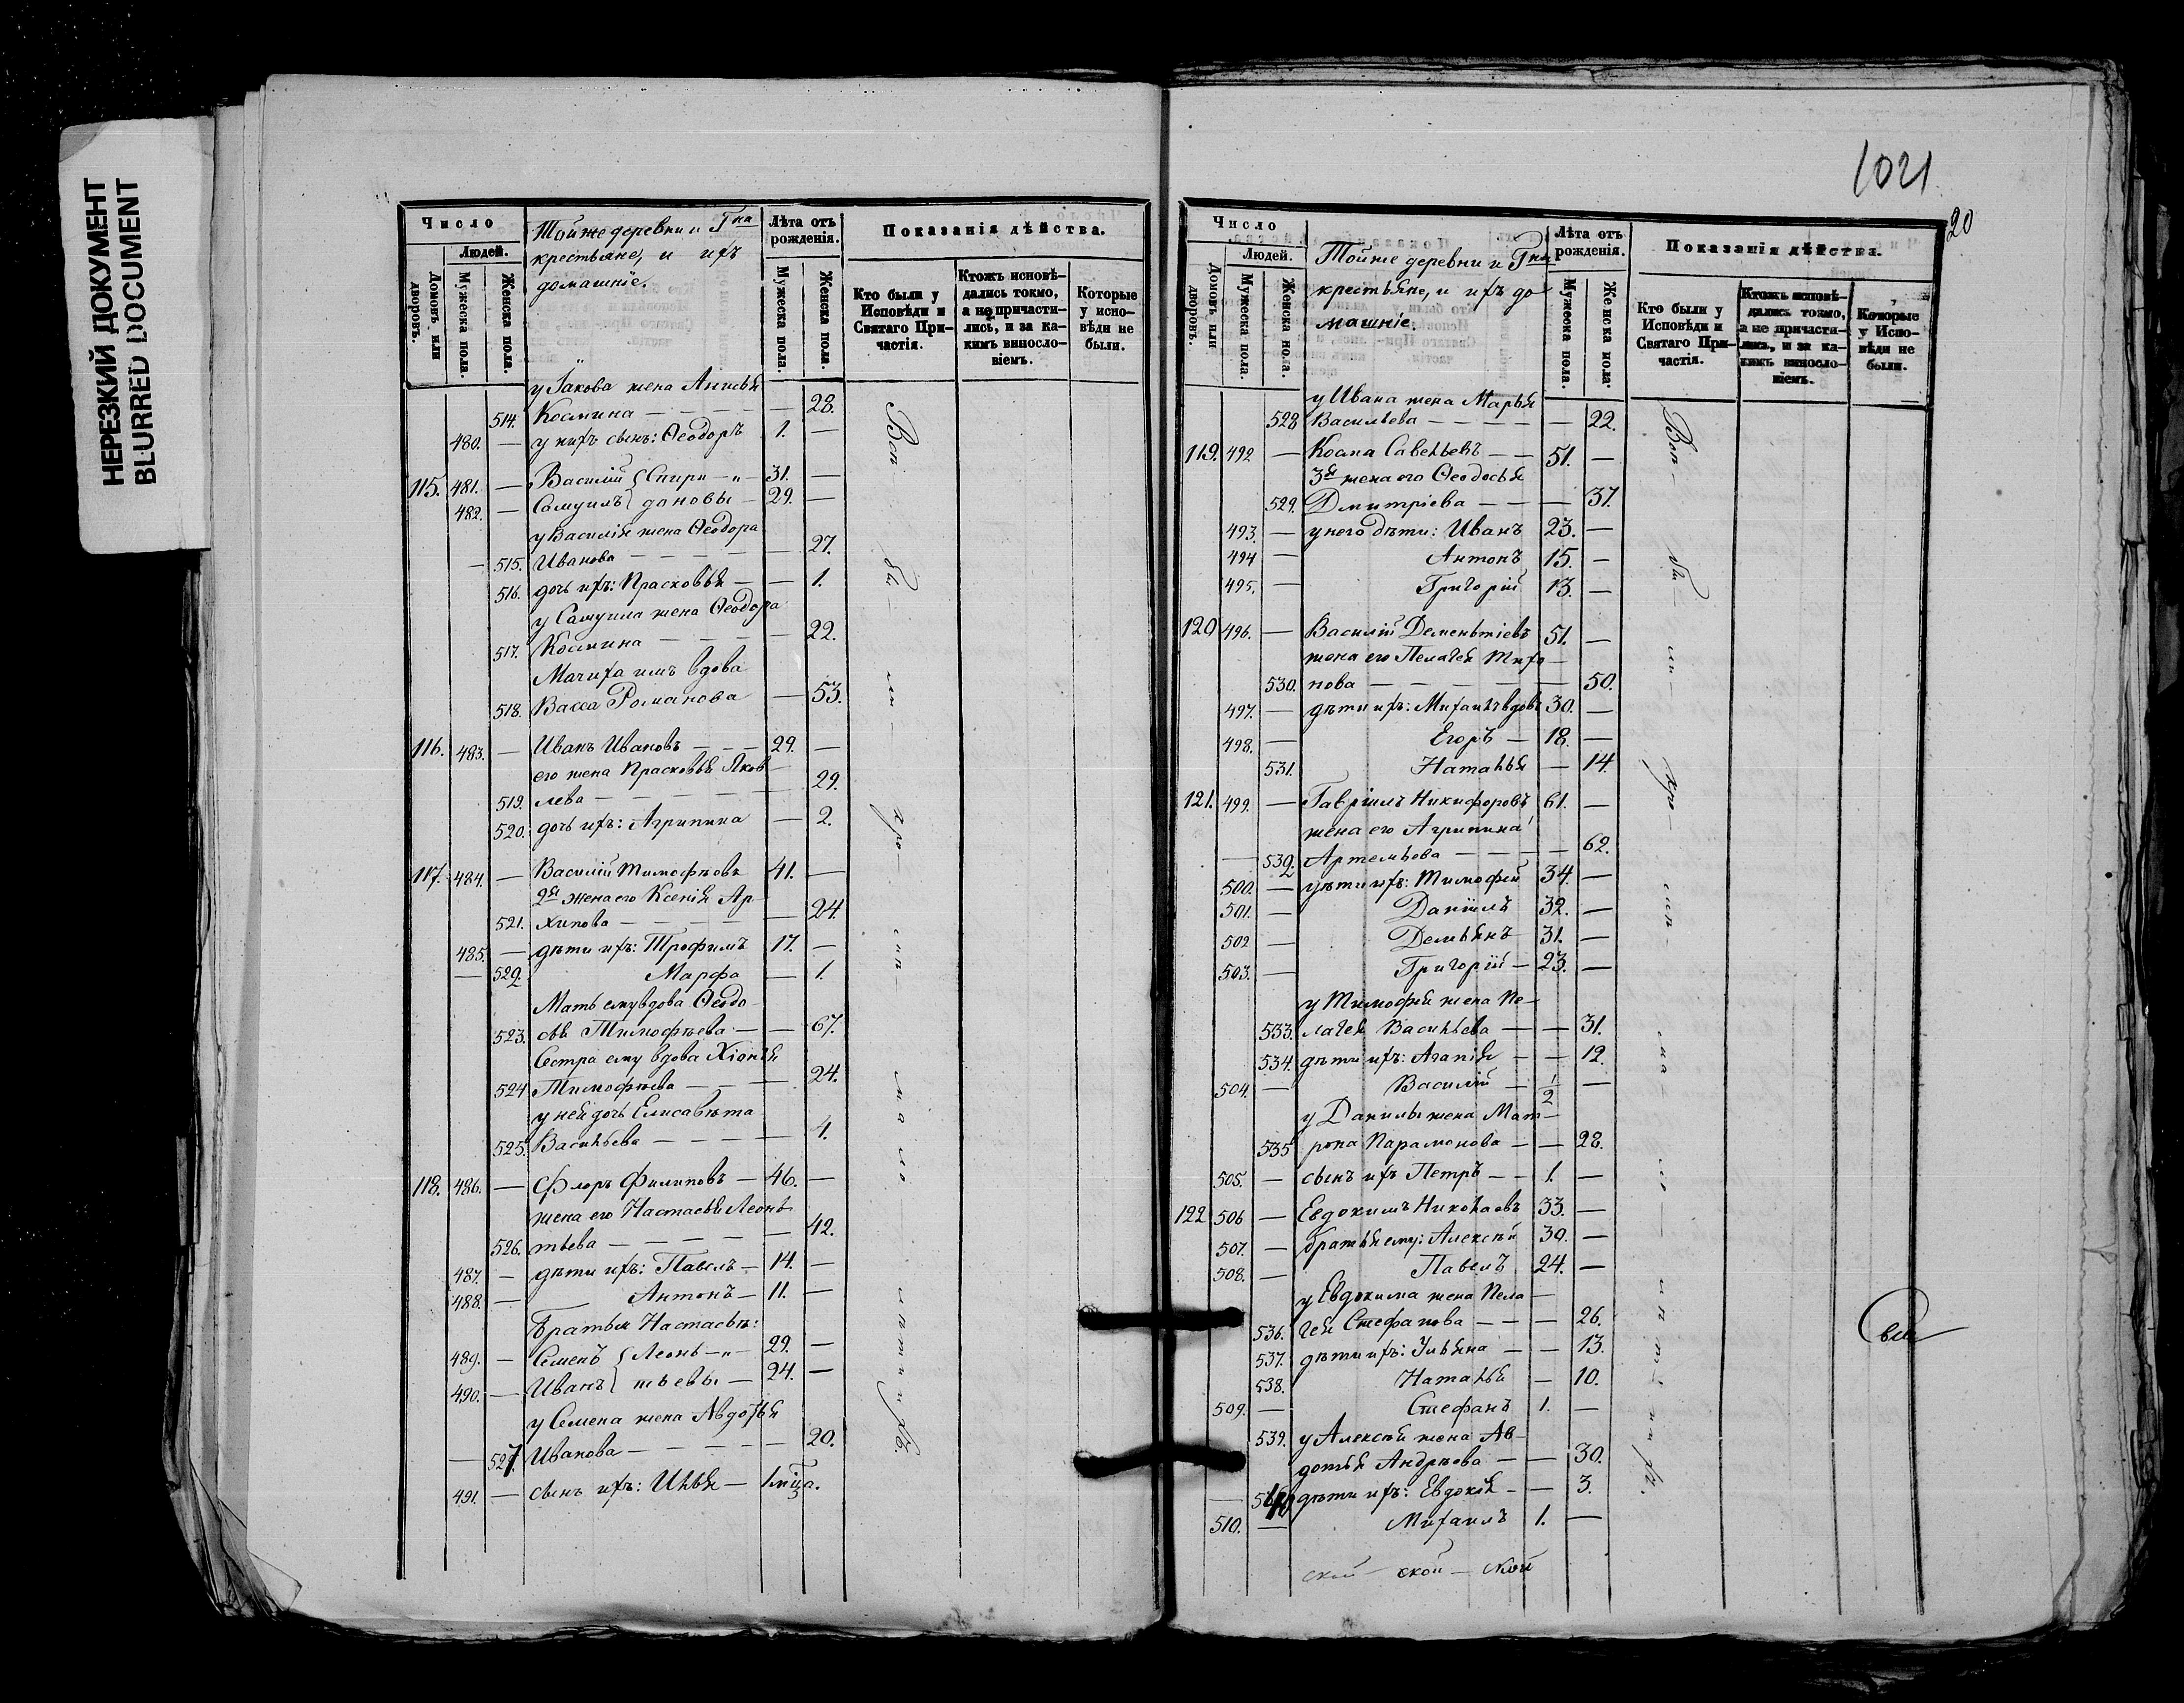 НЕРЕЗКИЙ ДОКУМЕНТ
BLURRED DOCUMENT
Число
Людей.
Домовъ или дворовъ.
Мужеска пола.
Женска пола.
Тойже деревни и Гна
крестьяне, и ихъ
домашніе.
Лѣта отъ рожденія.
Мужеска пола.
Женска пола.
Показанія дѣйства.
Кто были у Исповѣди и Святаго Причастія.
Ктожъ исповѣдались токмо, а не причастились, и за какимъ винословіемъ.
Которые у исповѣди не были.
у Іакова жена Анисья
514. Космина — — — — 28.
480. — у нихъ сынъ: Ѳеодоръ 1. —
115. 481. — Василій { Спири — „ — 31. —
482. — Самуилъ } доновы — 29. —
у Василія жена Ѳеодора
— 515. Иванова — — — — 27.
516. дочь ихъ: Прасковья — — 1.
у Самуила жена Ѳеодора
517. Космина — — — — 22.
Мачиха имъ вдова
518. Васса Романова — 53.
116. 483. — Иванъ Ивановъ — — — 29. —
его жена Прасковья Яков-
519. лева — — — — — 29.
520. дочь ихъ: Агрипина — 2.
117. 484. — Василій Тимофѣевъ 41. —
2я жена его Ксенія Ар-
521. хипова — — — — 24.
485. — дѣти ихъ: Трофимъ 17. —
— 522. Марфа — 1.
Мать ему вдова Ѳеодо-
523. сья Тимофѣева — — 67.
Сестра ему вдова Хіонія
524. Тимофѣева — — — 24.
у ней дочь Елисавѣта
525. Васильева — — — — 4.
118. 486. — Флоръ Филиповъ — 46. —
жена его Настасья Леонь-
526. тьева — — — — — 42.
487. — дѣти ихъ: Павелъ — 14. —
488. — Антонъ — 11. —
Братья Настасьѣ:
489. — Семенъ { Леонь — „ — 29. —
490. — Иванъ } тьевы — 24. —
у Семена жена Авдотья
— 527. Иванова — — — — 20.
491. — сынъ ихъ: Илья — 1 мца.
1021
20
Число
Людей.
Домовъ или дворовъ.
Мужеска пола.
Женска пола.
Тойже деревни и Гна
крестьяне, и ихъ до
машніе.
Лѣта отъ рожденія.
Мужеска пола.
Женска пола.
Показанія дѣйства.
Кто были у Исповѣди и Святаго Причастія.
Ктожъ исповѣдались токмо, а не причастились, и за какимъ винословіемъ.
Которые у Исповѣди не были.
у Ивана жена Марья
528 Васильева — — — — — 22.
119. 492 — Косма Савельевъ — — 51. —
3я жена его Ѳеодосья
529. Дмитріева — — — 37.
493. — у него дѣти: Иванъ 23. —
494 — Антонъ 15. —
495. — Григорій 13. —
120 496. — Василій Дементіевъ 51. —
жена его Пелагея Тихо-
530. нова — — — — — 50.
497. — дѣти ихъ: Михаилъ вдовъ 30. —
498. — Егоръ — 18. —
531. Наталья — 14.
121. 499. — Гавріилъ Никифоровъ 61. —
жена его Агрипина
— 532. Артемьева — — — — 62.
500. — дѣти ихъ: Тимофей 34. —
501. — Даніилъ 32. —
502 — Демьянъ 31. —
503. — Григорій — 23. —
у Тимофея жена Пе-
533. лагея Васильева — — 31.
534. дѣти ихъ: Агапія — — 12.
504. — Василій — 1/2 —
у Данилы жена Мат-
535 рона Парамонова — — 28.
505. — сынъ ихъ Петръ — — 1. —
122 506 — Евдокимъ Николаевъ 33. —
507. — братья ему: Алексѣй 30. —
508. — Павелъ 24. —
у Евдокима жена Пела-
536. гея Стефанова — — — 26.
537. дѣти ихъ: Ульяна — — 13.
538. Наталья — 10.
509. — Стефанъ 1. —
539. у Алексѣя жена Ав-
дотья Андрѣева — — 30.
— 540 дѣти ихъ: Евдокія — — 3.
510. — Михаилъ 1. —
ской — ской — ской